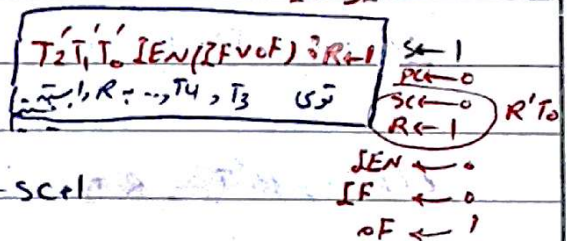 T₂'T₁'T₀' IEN(IF∨OF) : R←1
توی T₃ , T₄ , ... به R , 1
S ← 1
PC ← 0
SC ← 0
R ← 1
R'T₀
IEN ← 0
SC+1
IF ← 0
OF ← 1